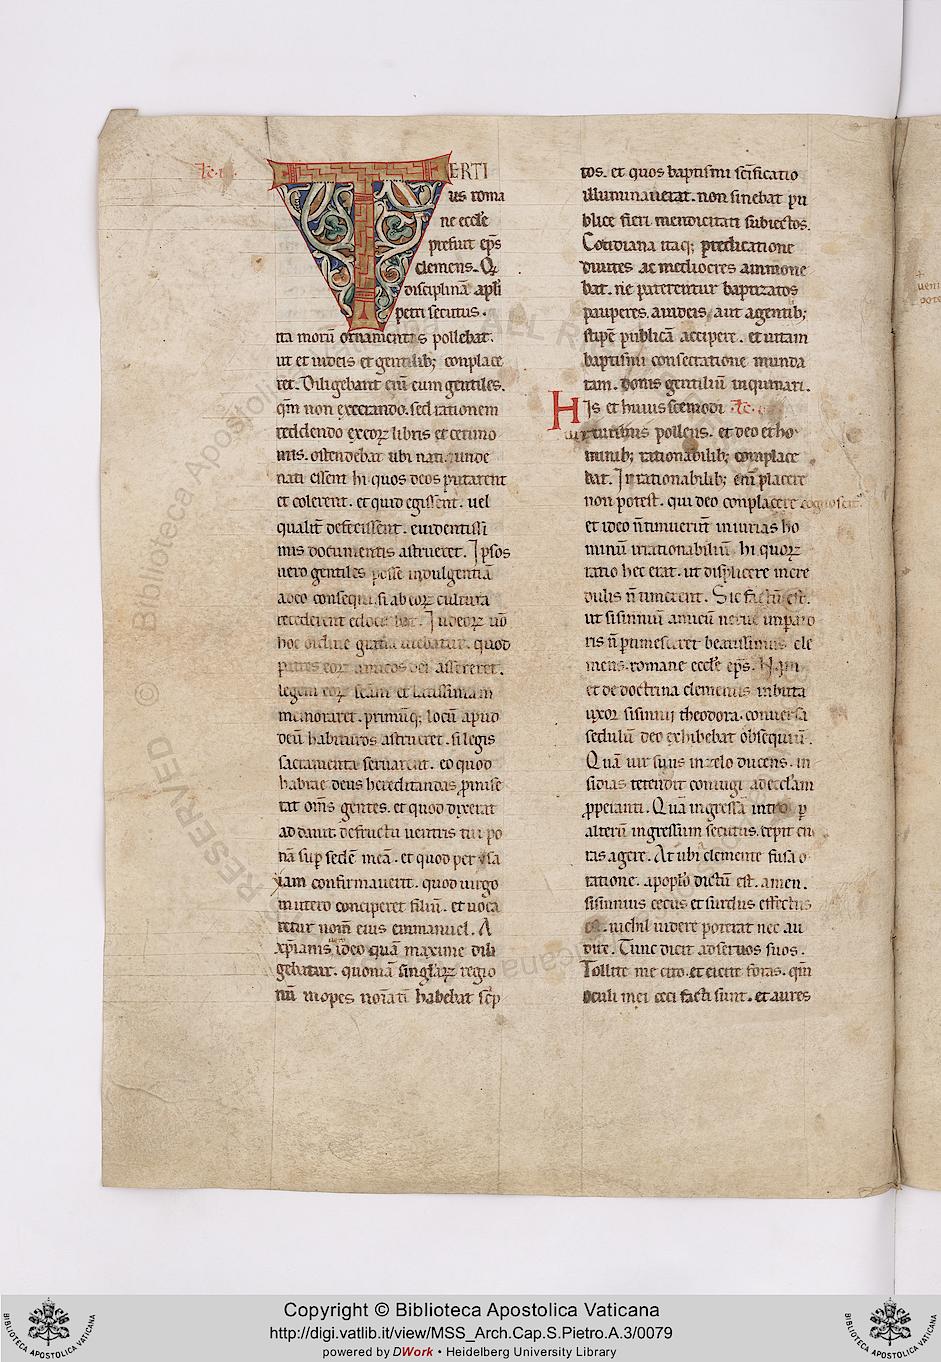 Lc. i.
TERTI
us roma
ne eccłe
prefuit ep̄s
clemens. Qꝛ
disciplinā apłi
petri secutus.
ita morū ornamentis pollebat.
ut et iudeis et gentilib; conplace
ret. Diligebant eū eum gentiles.
qm̄ non execrando. sed rationem
reddendo ex eoꝝ libris et cerimo
niis. ostendebat ubi nati. unde
nati essent hi quos deos putarent
et colerent. et quid egissent. uel
qualit̄ defecissent. euidentissi
mis documentis astrueret. Ipsos
uero gentiles posse indulgentiā
a deo consequi. si ab eoꝝ cultura
recederent edocebat. Iudeoꝝ u̅o
hoc ordine gratia utebatur. quod
patres eoꝝ amicos dei assereret.
legem eoꝝ sc̄am et
memoraret. primūq; locū apud
deū habituros astrueret. si legis
sacramenta seruarent. eo quod
habrae deus hereditandas promise
rat om̄s gentes. et quod dixerat
ad dauit. de fructu uentris tui po
nā sup sedē meā. et quod per ysa
iam confirmauerit. quod uirgo
in utero conciperet filiū. et uoca
retur nom̄ eius emmanuel. A
xp̄ianis ideo quā maxime dili
gebatur. quoniā singlaꝝ regio
nū inopes noīatī habebat sc̄p
tos. et quos baptismi sc̄ificatio
illuminauerat. non sinebat pu
blice fieri mendicitati subiectos.
Cotidiana itaq; predicatione
diuites ac mediocres ammone
bat. ne paterentur baptizatos
pauperes. a iudeis, aut a gentib;
stipē publicā accipere. et uitam
baptismi consecratione munda
tam. donis gentiliū inquinari.
His et huiuscemodi Lc.
uirtutibus pollens. et deo et ho
minib; rationabilib; complace
bat. Irrationabilib; enī placere
non potest. qui deo conplacere cognoscit̄
et ideo n̄ timuerunt iniurias ho
minū irrationabiliū hi quoꝝ
ratio hec erat. ut displicere incre
dulis n̄ timerent. Sic factū est.
ut sisinniū amicū nerue inperato
ris n̄ ptimesceret beatissimus cle
mens. romane eccłe ep̄s.
et de doctrina clementis inbuta
uxor sisinnii theodora. conuersa
sedulū deo exhibebat obsequiū.
Quā uir suus in zelo ducens. in
sidias tetendit coniugi ad eccłam
p̱peranti. Quā ingressā intro p̱
alterū ingressum secutus. cepit cu
ras agere. At ubi a clemente fusa o
ratione. a pop̄lo dictū est. amen.
sisinnius cecus et surdus effectus
ē. nichil uidere poterat nec au
dire. Tunc dicit ad seruos suos.
Tollite me cito. et eicite foras. qm̄
oculi mei ceci facti sunt. et aures
Copyright © Biblioteca Apostolica Vaticana
http://digi.vatlib.it/view/MSS_Arch.Cap.S.Pietro.A.3/0079
powered by DWork • Heidelberg University Library
BIBLIOTECA APOSTOLICA VATICANA
BIBLIOTECA APOSTOLICA VATICANA